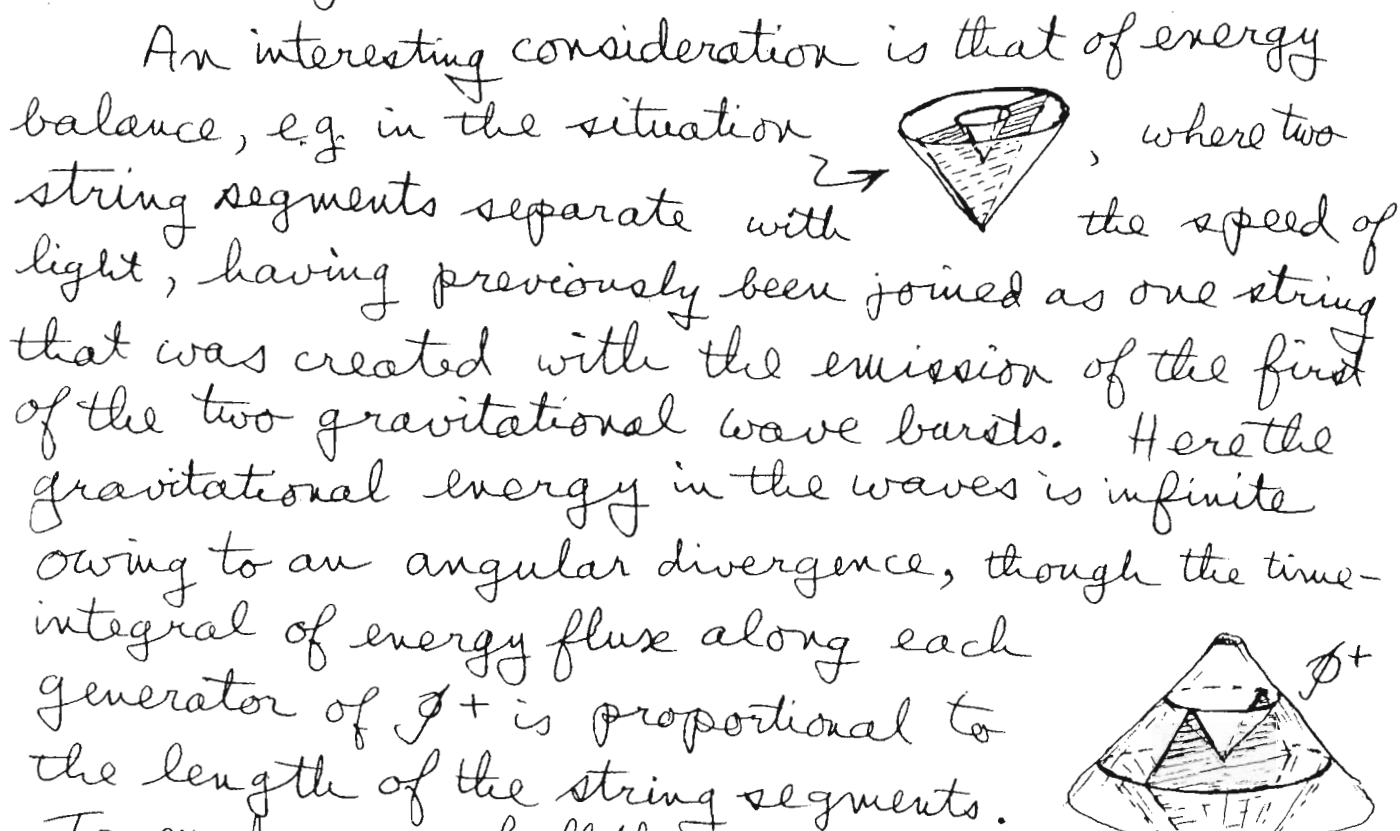 An interesting consideration is that of energy
balance, e.g. in the situation , where two
string segments separate with the speed of
light, having previously been joined as one string
that was created with the emission of the first
of the two gravitational wave bursts. Here the
gravitational energy in the waves is infinite
owing to an angular divergence, though the time-
integral of energy flux along each
generator of ℐ+ is proportional to
the length of the string segments.
ℐ+